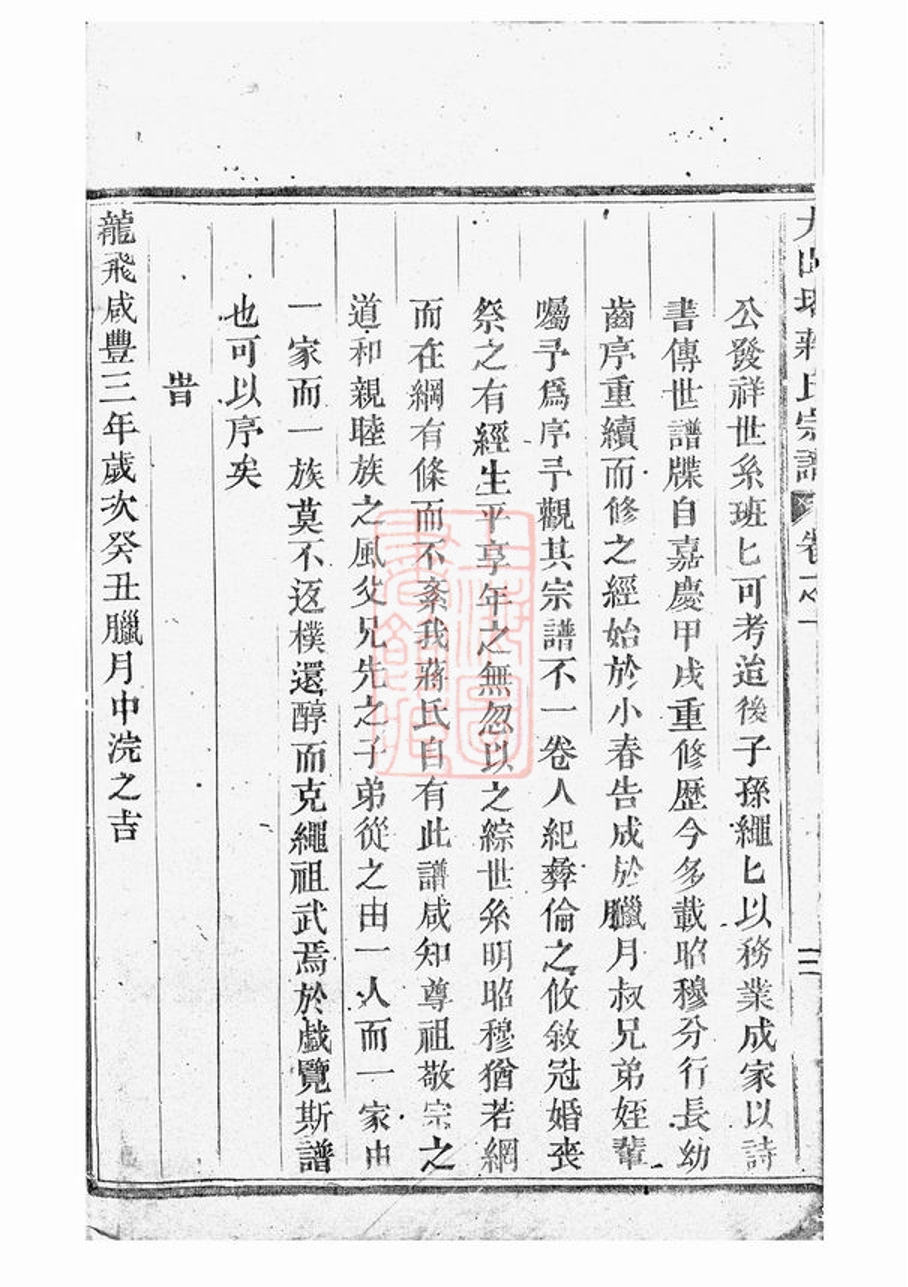 氏宗譜 卷之一
公發祥世系班匕可考迨後子孫繩匕以務業成家以詩
書傳世譜牒自嘉慶甲戌重修歷今多載昭穆分行長幼
齒序重續而修之經始於小春告成於臘月叔兄弟姪輩
囑予爲序予觀其宗譜不一卷人紀彝倫之攸敘冠婚喪
祭之有經生平享年之無忽以之綜世系明昭穆猶若網
而在綱有條而不紊我蔣氏自有此譜咸知尊祖敬宗之
道和親睦族之風父兄先之子弟從之由一人而一家由
一家而一族莫不返樸還醇而克繩祖武焉於戲覽斯譜
也可以序矣
旹
龍飛咸豐三年歲次癸丑臘月中浣之吉